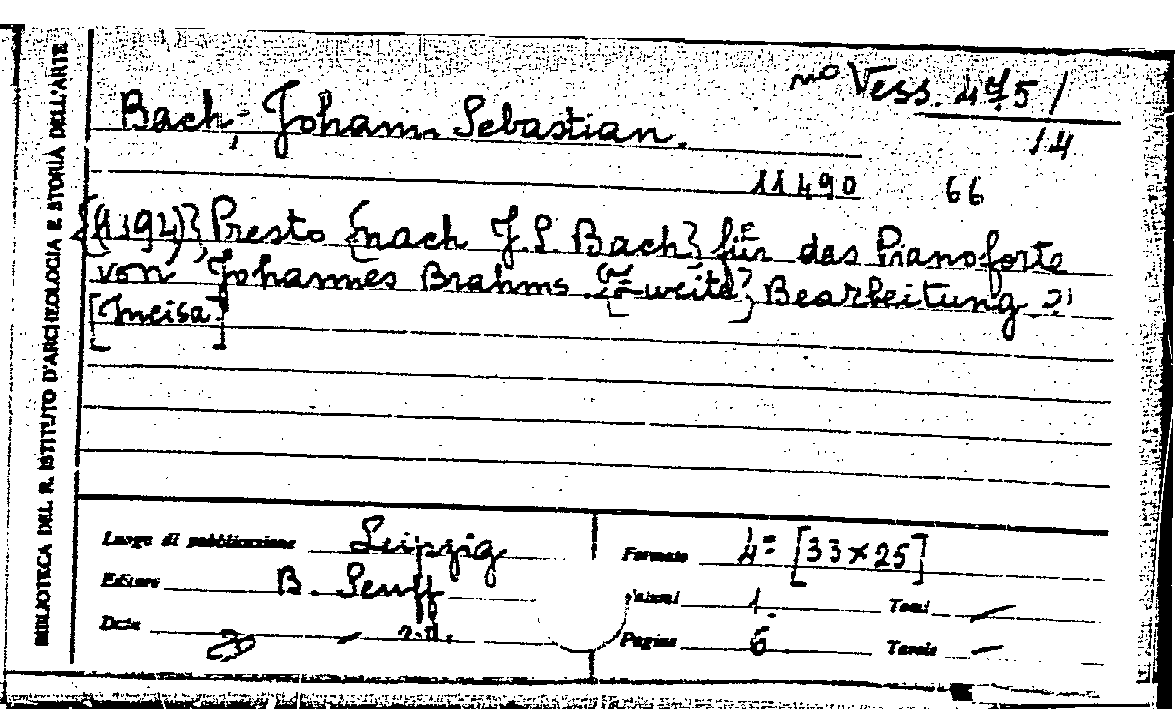 BIBLIOTECA DEL R. ISTITUTO D'ARCHEOLOGIA E STORIA DELL'ARTE
mo Vess. 475/
14
Bach, Johann Sebastian.
11490 66
Presto {nach J. S. Bach} für das Pianoforte
von Johannes Brahms. Zweite Bearbeitung
[Incisa]
Luogo di pubblicazione Leipzig
Editore B. Senff
Data - s.d.
Formato 4º [33x25]
Volumi 1. Tomi -
Pagine 6 Tavole -